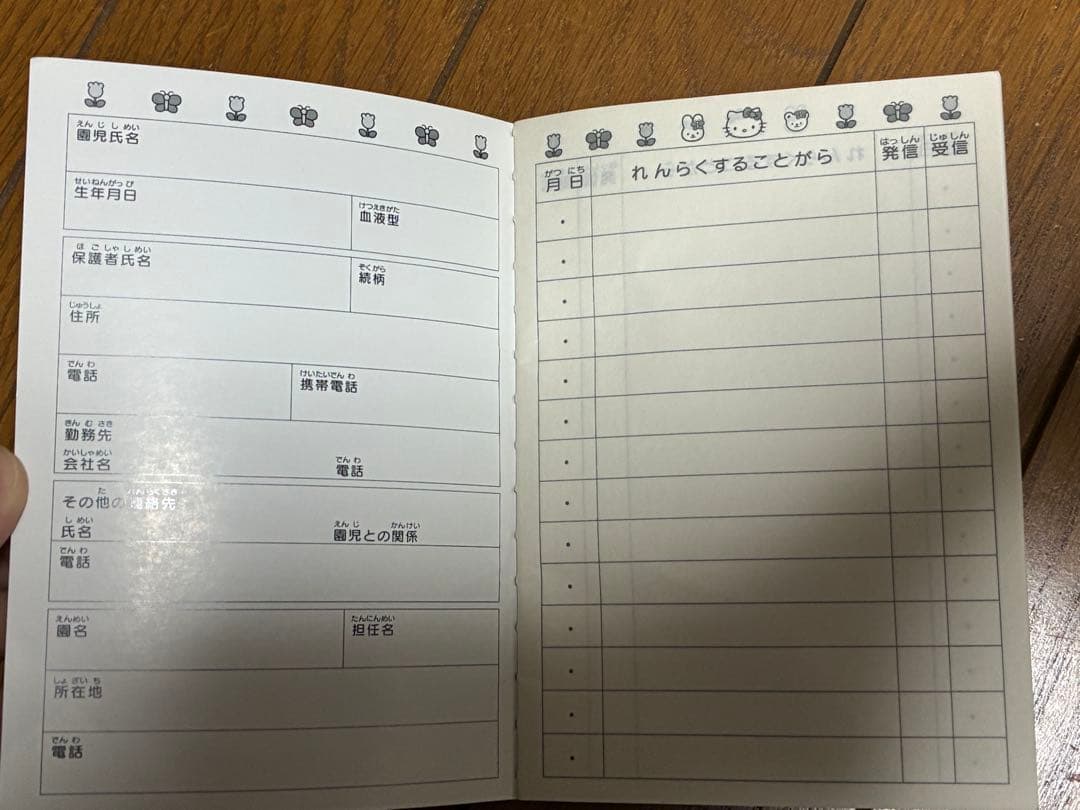 えんじしめい
園児氏名
せいねんがっぴ
生年月日
けつえきがた
血液型
ほごしゃしめい
保護者氏名
ぞくがら
続柄
じゅうしょ
住所
でんわ
電話
けいたいでんわ
携帯電話
きんむさき
勤務先
かいしゃめい
会社名
でんわ
電話
た れんらくさき
その他の連絡先
しめい
氏名
えんじ かんけい
園児との関係
でんわ
電話
えんめい
園名
たんにんめい
担任名
しょざいち
所在地
でんわ
電話
がつ にち
月 日
れんらくすることがら
はっしん
発信
じゅしん
受信